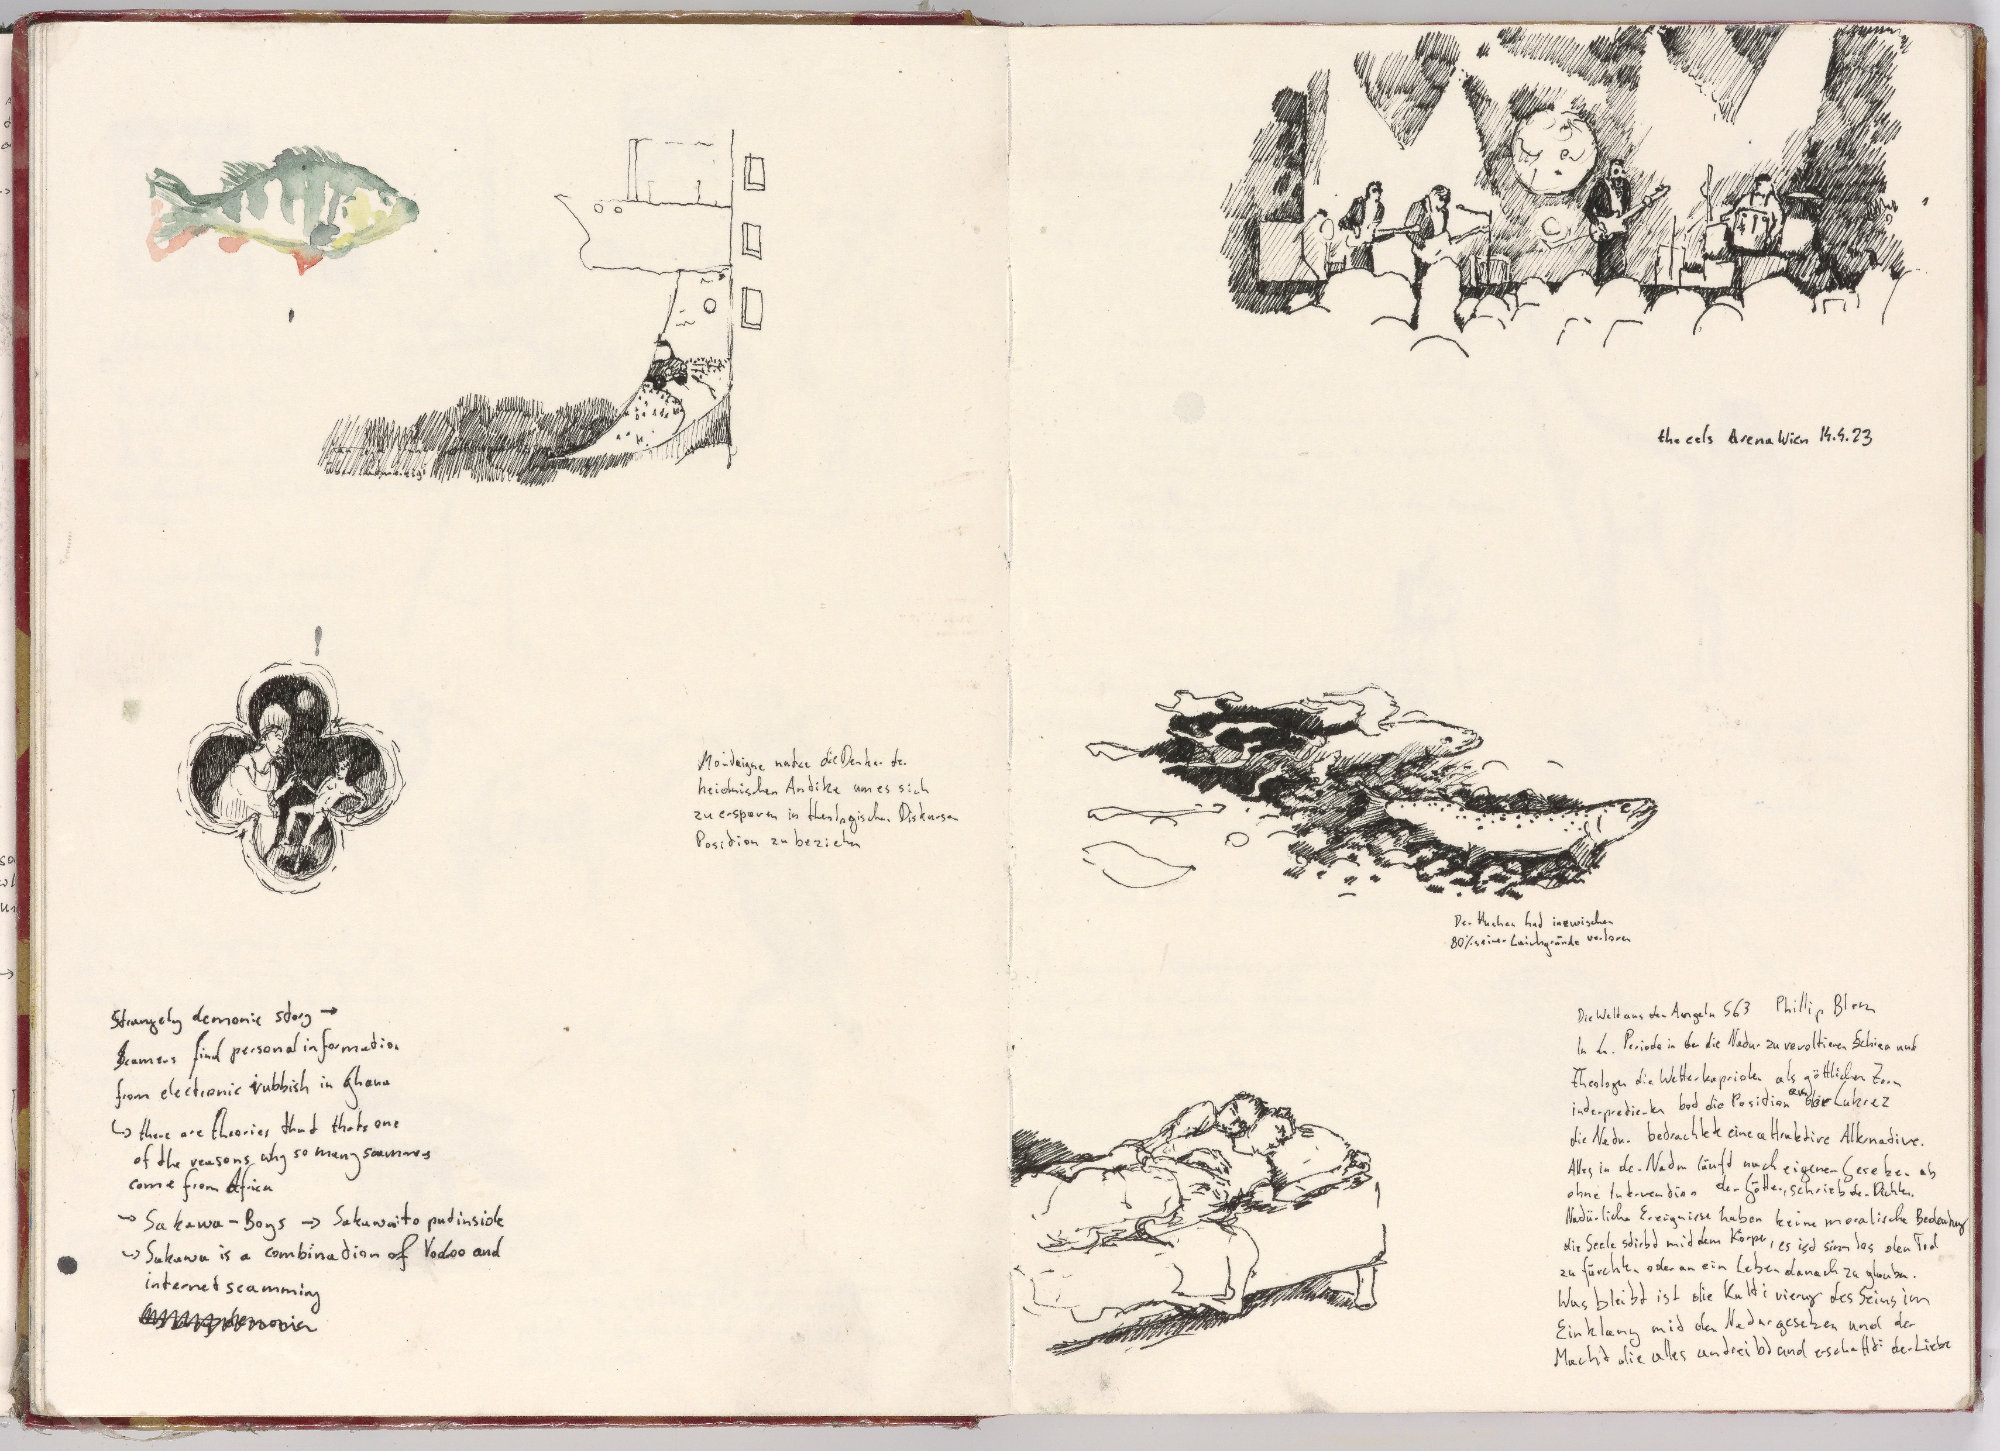 Mondaigne nutze die Denker der
heidnischen Andike um es sich
zu ersparen in theologischen Diskursen
Posidion zu beziehn
Strangely demonic story →
Scamers find personal information
from electronic rubbish in Ghana
↪ there are theories that thats one
of the reasons why so many scammers
come from Africa
→ Sakawa-Boys → Sakawa: to put inside
↪ Sakawa is a combination of Vodoo and
internet scamming
the eels Arena Wien 14.4.23
Der Huchen had inzwischen
80% seiner Laichgründe verloren
Die Welt aus den Angeln S63 Phillip Blom
In der Periode in der die Nadur zu revoltieren schien und
Theologen die Wetterkaprioten als göttlichen Zorn
inderpredierten bod die Posidion
die Nadur bedrachtete eine attraktive Alternadive.
Alles in der Nadur läuft nach eigenen Gesetzen ab
ohne Intervendion der Götter, schrieb der Dichter.
Nadürliche Ereignisse haben keine moralische Bedeudung
die Seele stirbd mid dem Körper, es isd sinnlos den Tod
zu fürchten oder an ein Leben danach zu glauben.
Was bleibd ist die Kultivierung des Seins im
Einklang mid den Nadurgesetzen und der
Machd die alles andreibd und erschaffd: der Liebe